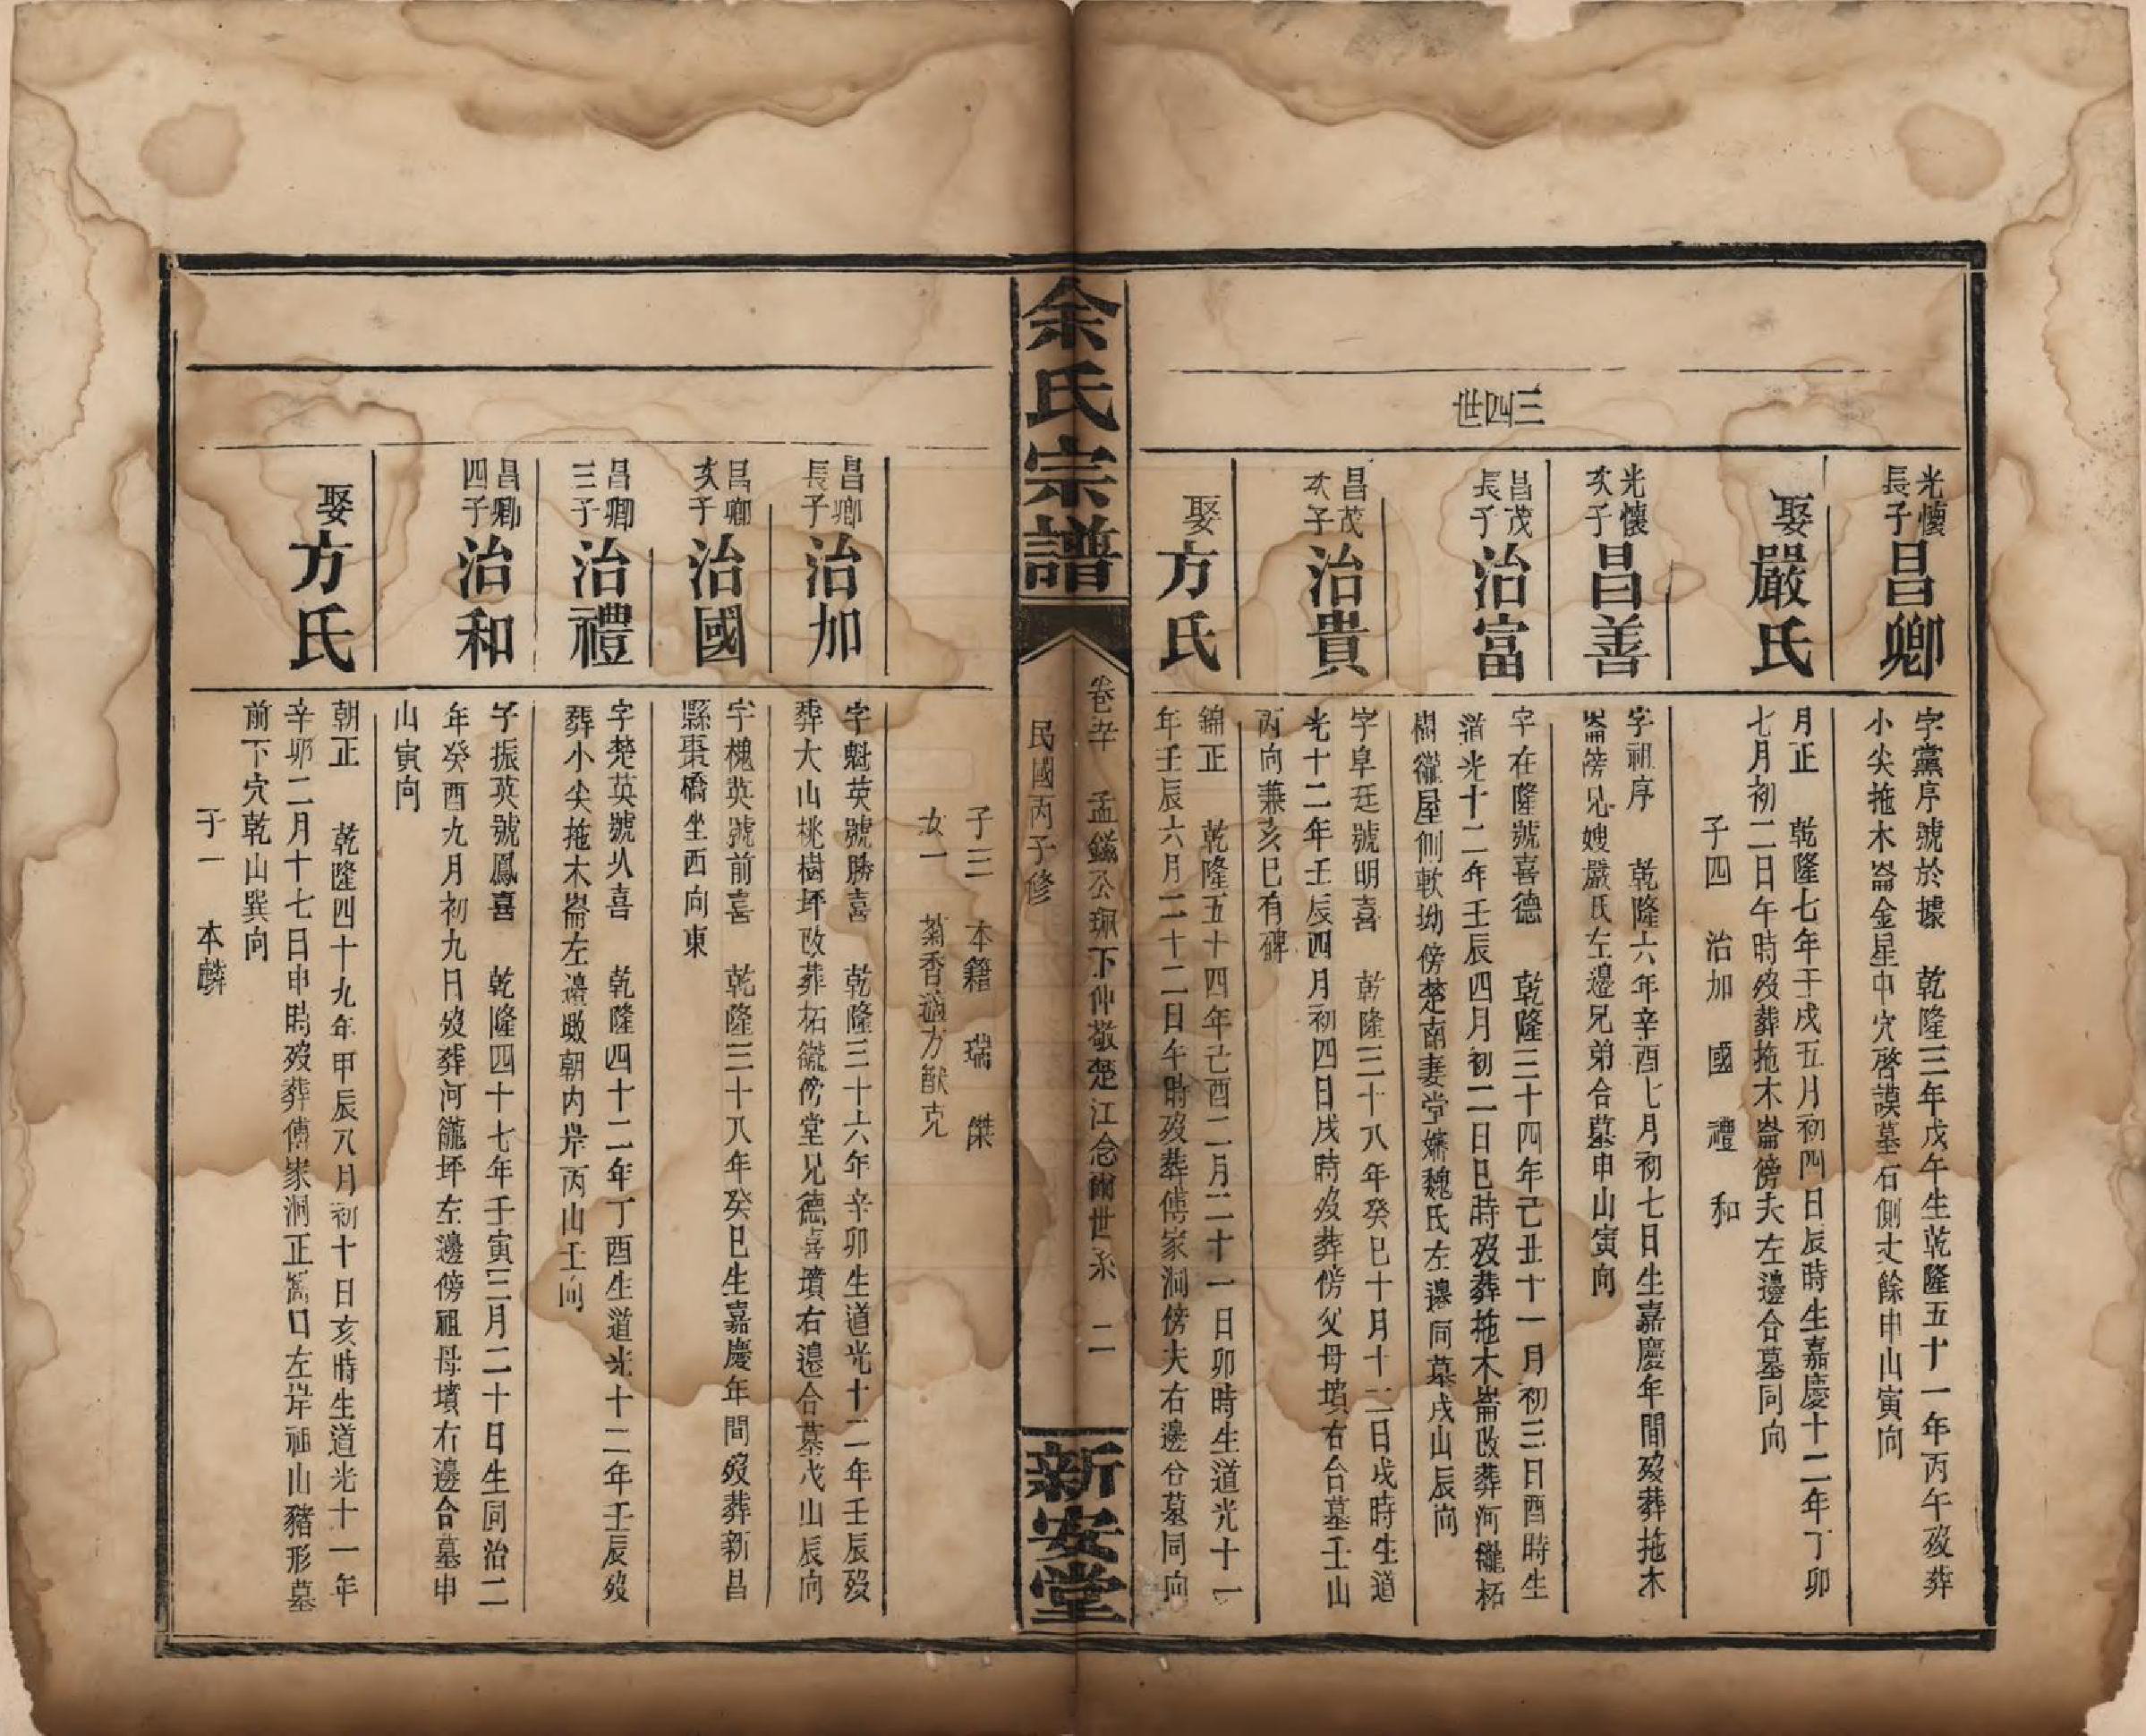 三四世
光懷
長子
昌卿
字黨序號於據　乾隆三年戊午生乾隆五十一年丙午歿葬
小尖拖木崙金星中穴啓謨墓右側丈餘申山寅向
娶嚴氏
月正　乾隆七年壬戌五月初四日辰時生嘉慶十二年丁卯
七月初二日午時歿葬拖木崙傍夫左邊合墓同向
子四　治加　國　禮　和
光懷
次子
昌善
字祖序　乾隆六年辛酉七月初七日生嘉慶年間歿葬拖木
崙傍兄嫂嚴氏左邊兄弟合墓申山寅向
昌茂
長子
治富
字在隆號喜德　乾隆三十四年己丑十一月初三日酉時生
道光十二年壬辰四月初二日巳時歿葬拖木崙改葬河巃柘
樹巃屋側軟坳傍楚南妻堂嬸魏氏左邊同墓戌山辰向
昌茂
次子
治貴
字阜廷號明喜　乾隆三十八年癸巳十月十二日戌時生道
光十二年壬辰四月初四日戌時歿葬傍父母墳右合墓壬山
丙向兼亥巳有碑
娶方氏
錦正　乾隆五十四年己酉二月二十一日卯時生道光十二
年壬辰六月二十二日午時歿葬傅家洞傍夫右邊合墓同向
余氏宗譜
卷辛　孟鎡公珮下仲敬楚江念爾世系　二
民國丙子修
新安堂
子三　本籍　瑞　傑
女一　菊香適方猷克
昌卿
長子
治加
字魁英號勝喜　乾隆三十六年辛卯生道光十二年壬辰歿
葬大山桃樹坪改葬柘巃傍堂兄德喜墳右邊合墓戊山辰向
昌卿
次子
治國
字槐英號前喜　乾隆三十八年癸巳生嘉慶年間歿葬新昌
縣棗橋坐西向東
昌卿
三子
治禮
字楚英號從喜　乾隆四十二年丁酉生道光十二年壬辰歿
葬小尖拖木崙左邊墩朝內岸丙山壬向
昌卿
四子
治和
字振英號鳳喜　乾隆四十七年壬寅三月二十日生同治二
年癸酉九月初九日歿葬河巃坪左邊傍祖母墳右邊合墓申
山寅向
娶方氏
朝正　乾隆四十九年甲辰八月初十日亥時生道光十一年
辛卯二月十七日申時歿葬傅家洞正窩口左岸祖山豬形墓
前下穴乾山巽向
子一　本麟